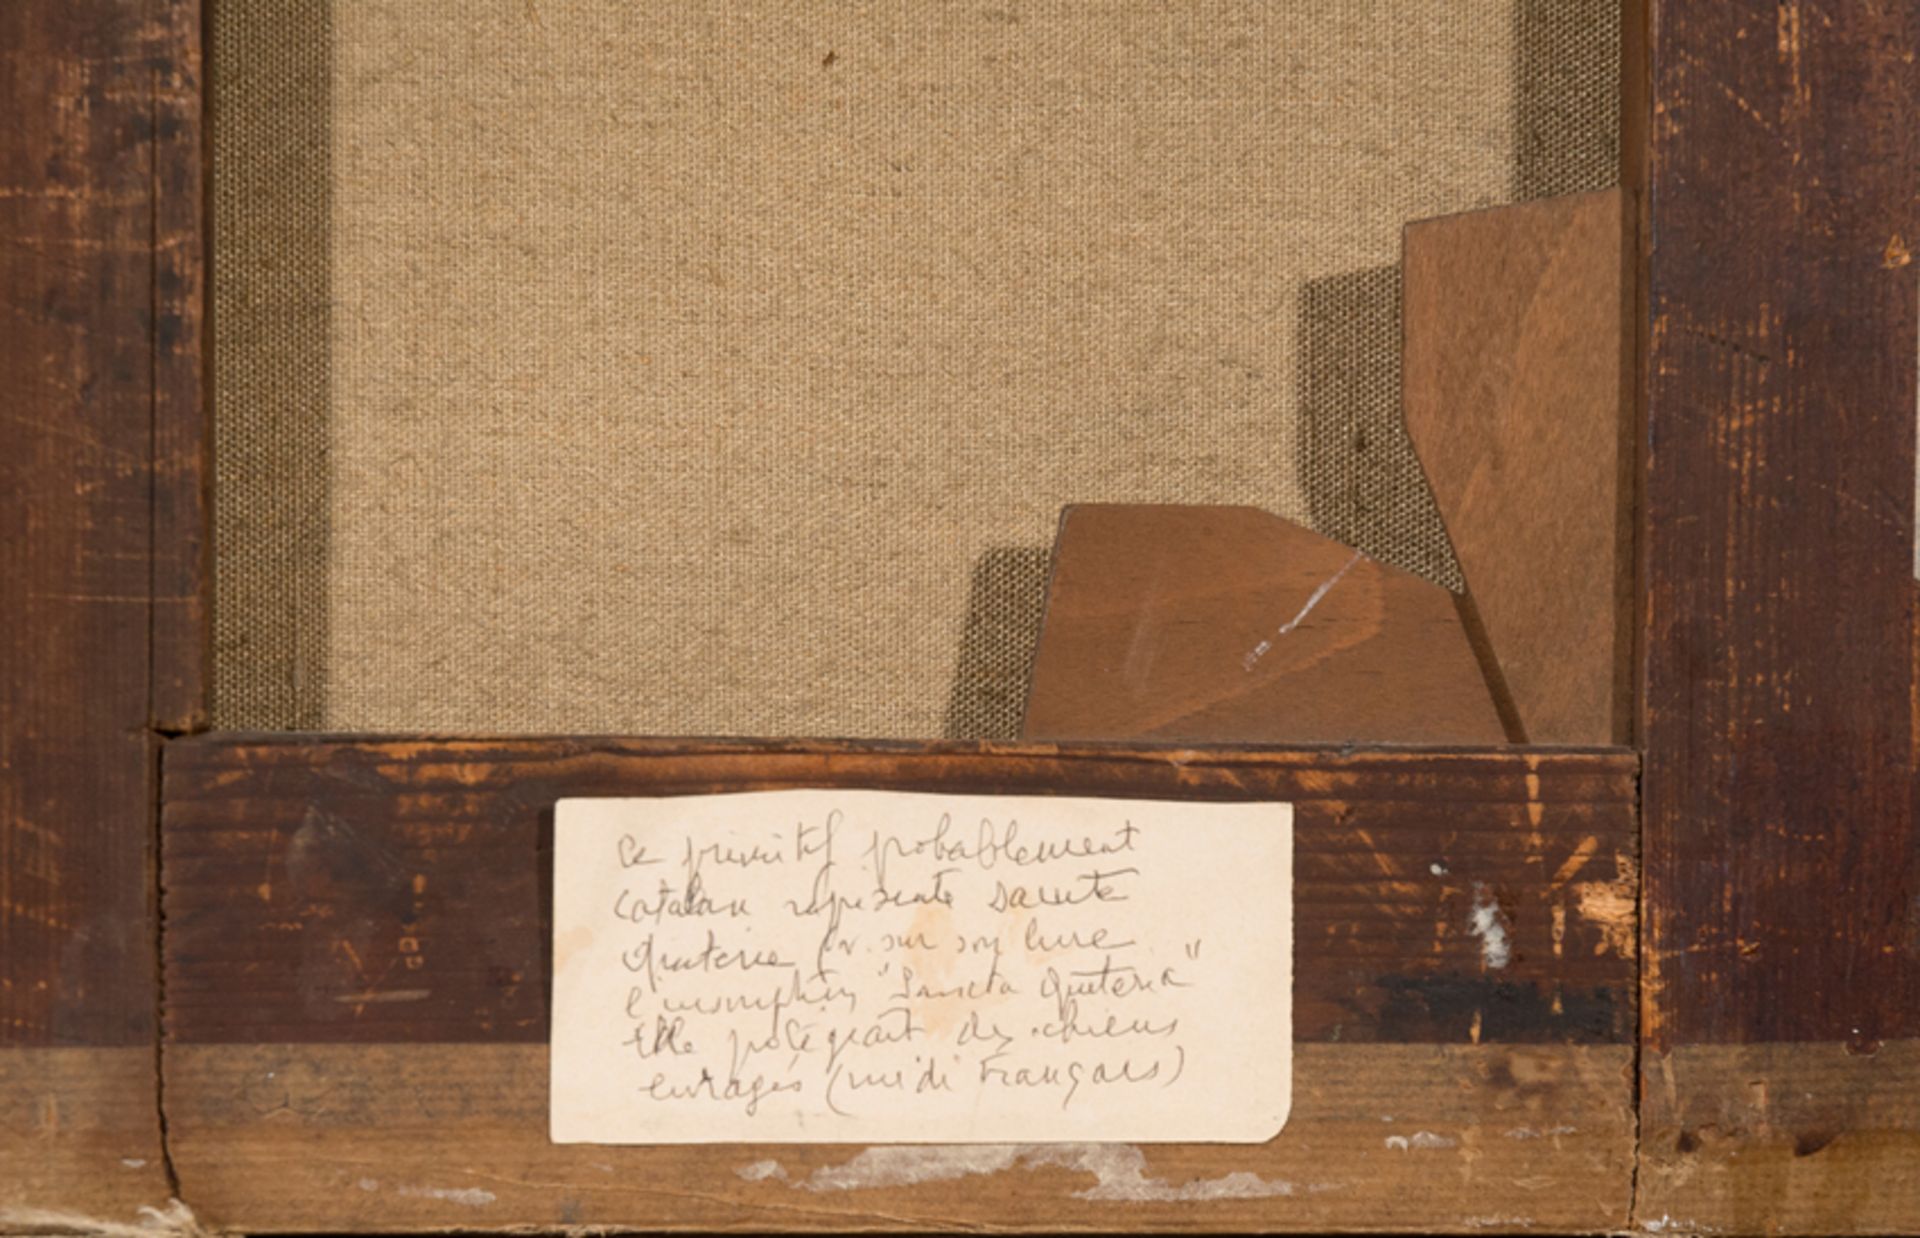 Ce primitif probablement
catalan représente sainte
Quiterie (v. sur son livre
l'inscription "Sancta Quiteria"
Elle protégeait des chiens
enragés (midi Français)